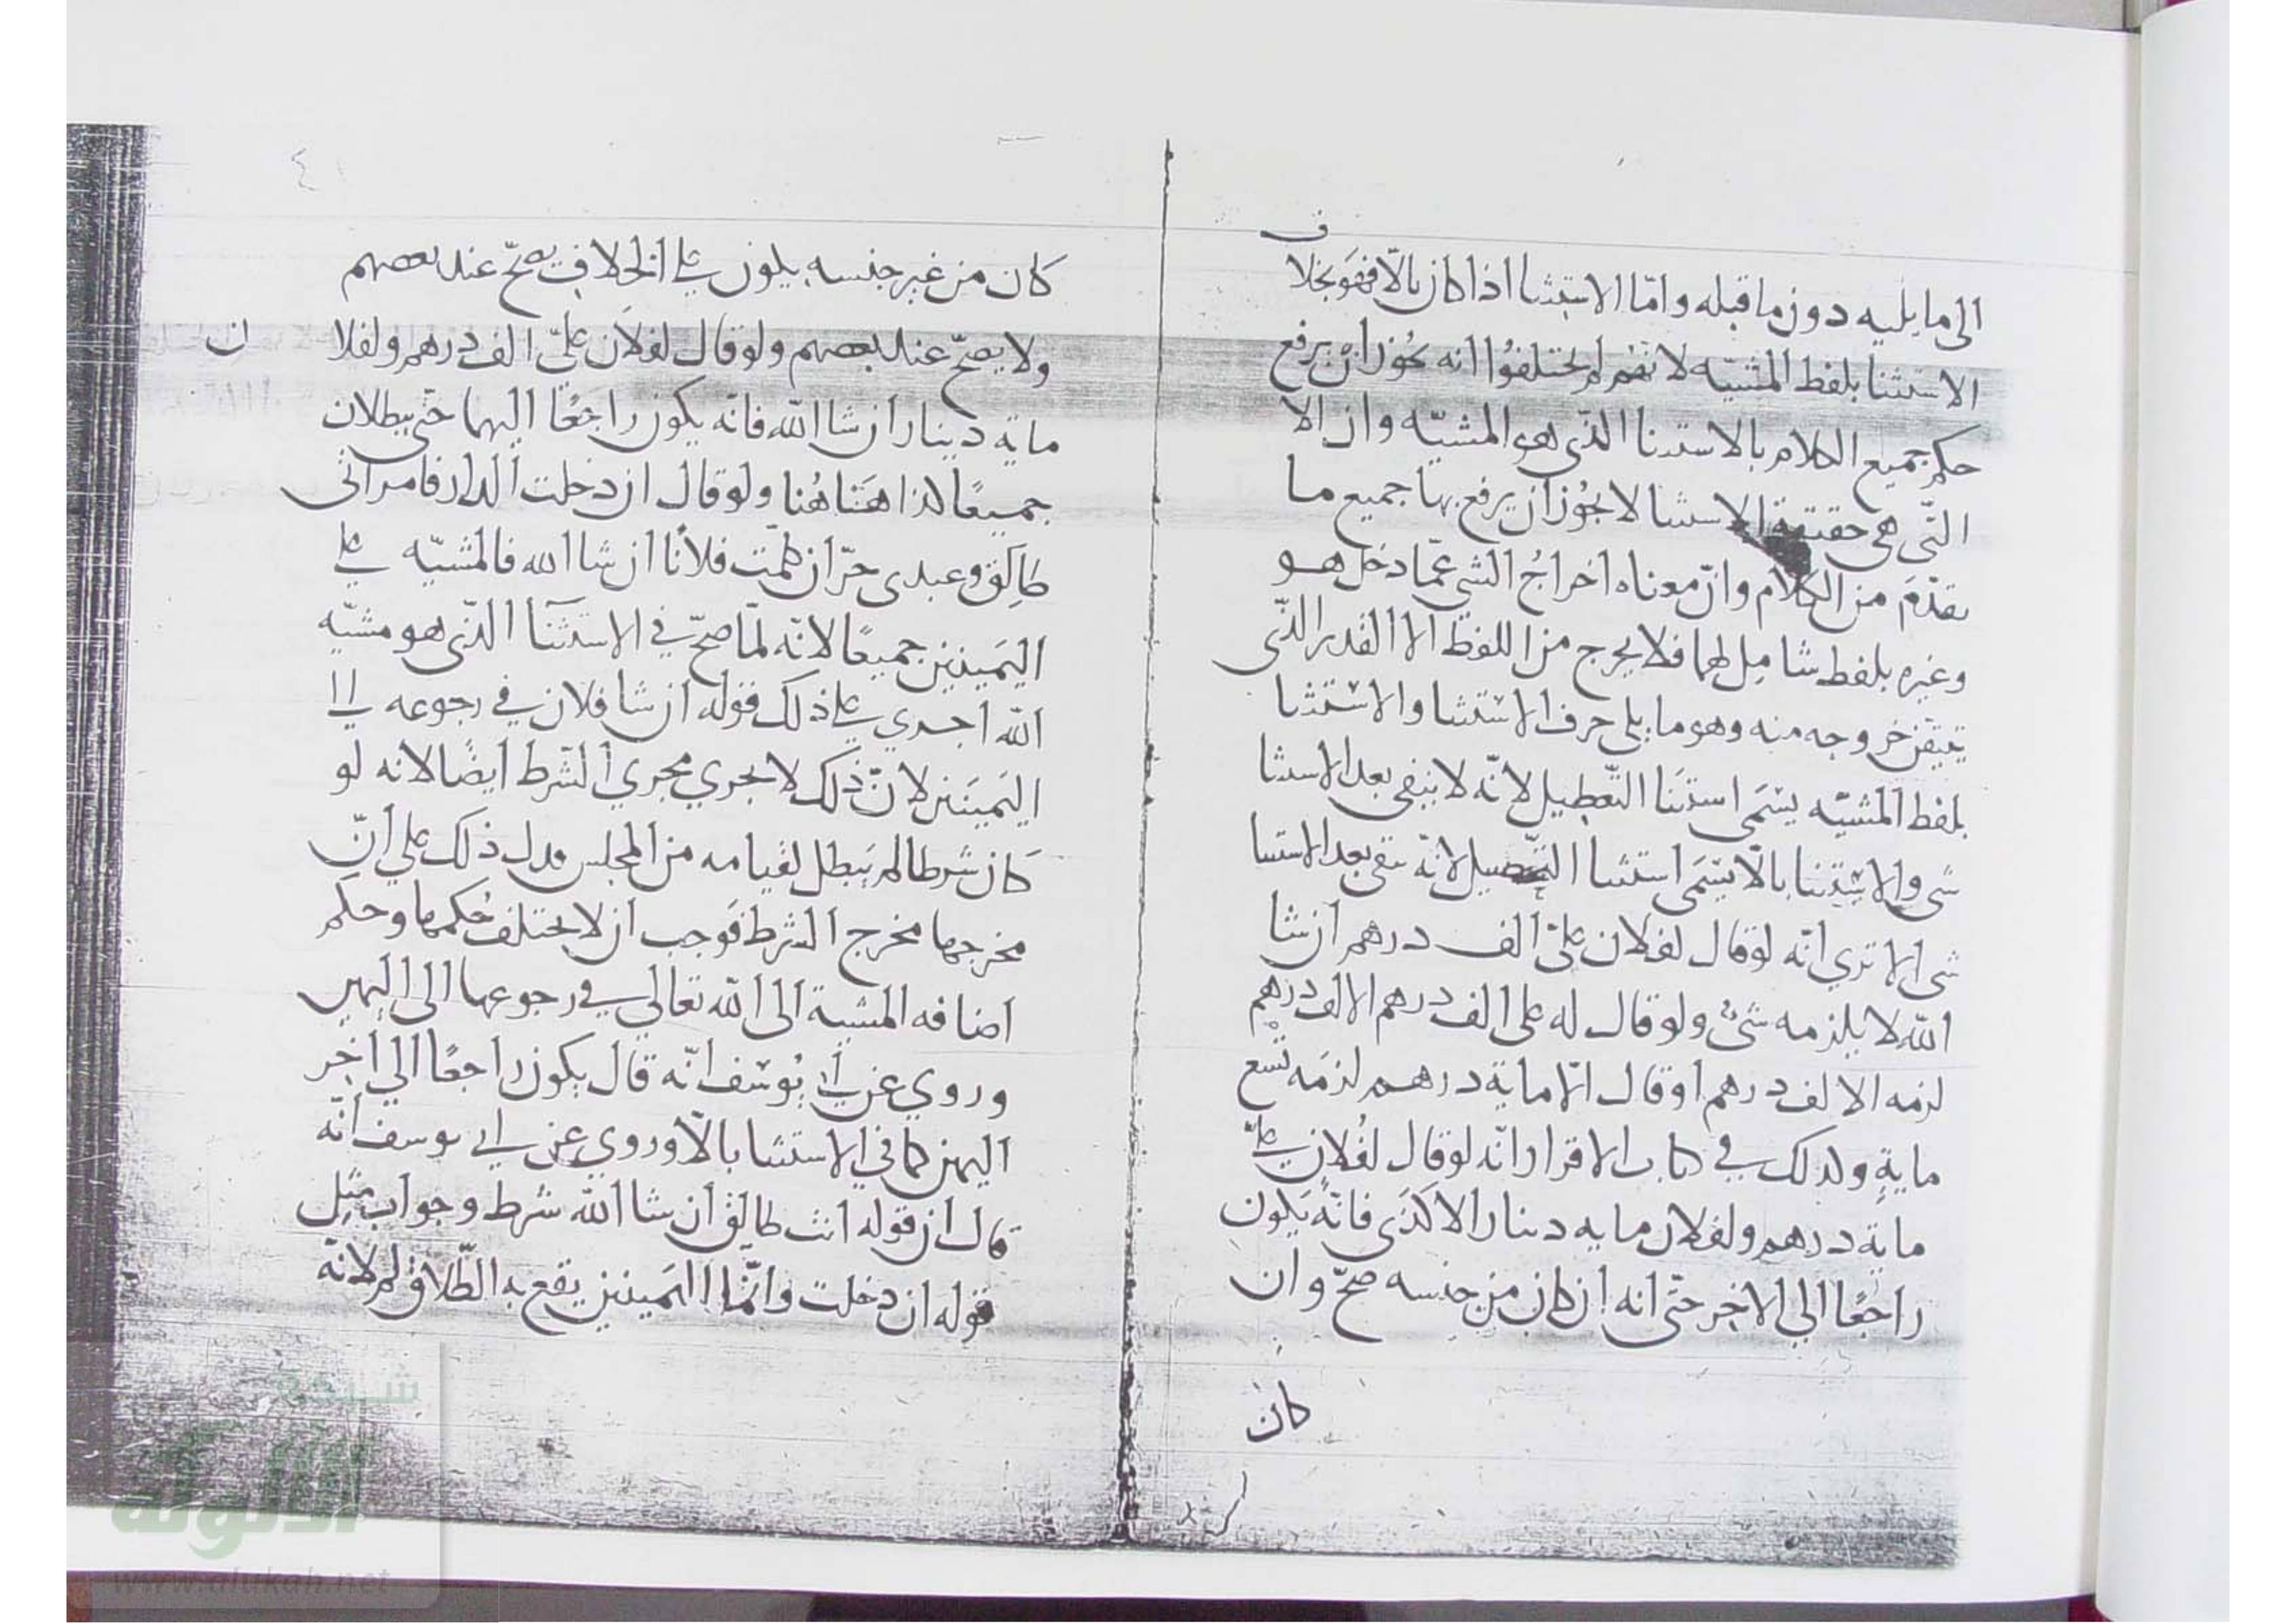 الى ما يليه دون ما قبله وامّا الاستثنا اذا كان بالّا فهو بخلا
ف
الاستثنا بلفظ المشيّه لانهم لم يختلفوا انه يجوز ان يرفع
حكم جميع الكلام بالاستثنا الذى هو المشيّه وان الا
التى هى حقيقة الاستثنا لا يجوز ان يرفع بها جميع ما
تقدّم من الكلام وان معناه اخراج الشى عمّا دخل هو
وغيره بلفظ شامل لهما فلا يخرج من اللفظ الا القدر الذى
تيقن خروجه منه وهو ما يلى حرف الاستثنا والاستثنا
بلفظ المشيّه يسمى استثنا التعطيل لانّه لا يبقى بعد الاستثنا
شى والاستثنا بالّا يسمى استثنا التحصيل لانّه يبقى بعد الاستثنا
شى الا ترى انّه لو قال لفلان علىّ الف درهم ان شا
الله لا يلزمه شىء ولو قال له على الف درهم الا الف درهم
لزمه الالف درهم او قال الّا ماية درهم لزمه تسع
ماية وكذلك في كتاب الاقرار انّه لو قال لفلان علىّ
ماية درهم ولفلان مايه دينار الا كذى فانّه يكون
راجعًا الي الاخر حتّى انه ان كان من جنسه صحّ وان
كان
٤١
كان من غير جنسه يكون على الخلاف يصحّ عند بعضهم
ولا يصحّ عند بعضهم ولو قال لفلان علىّ الف درهم ولفلا ن
ماية دينار ان شا الله فانّه يكون راجعًا اليهما حتّى يبطلان
جميعًا كذا ههنا هُنا ولو قال ان دخلت الدار فامراتى
طالق وعبدى حرّ ان كلّمت فلانًا ان شا الله فالمشيّه على
اليمينين جميعًا لانّه لمّا صحّ في الاستثنا الذّى هو مشيّه
الله اجرى على ذلك قوله ان شا فلان في رجوعه الى
اليمينين لانّ ذلك لا يجري مجري الشرط ايضًا لانه لو
كان شرطا لم يبطل لقيامه من المجلس فدل ذلك علي انّ
مخرجها مخرج الشرط فوجب ان لا يختلف حُكمها وحكم
اضافه المشية الى الله تعالي في رجوعها الى اليمين
وروي عن ابى يُوسف انّه قال يكون راجعًا الي اخر
اليمين كما في الاستثنا بالّا وروي عن ابى يوسف انّه
قال ان قوله انت طالق ان شا الله شرط وجواب مثل
قوله ان دخلت وانّما اليمينين يقع به الطّلاق لم لانّه
شبكة
الألوكة
www.alukah.net